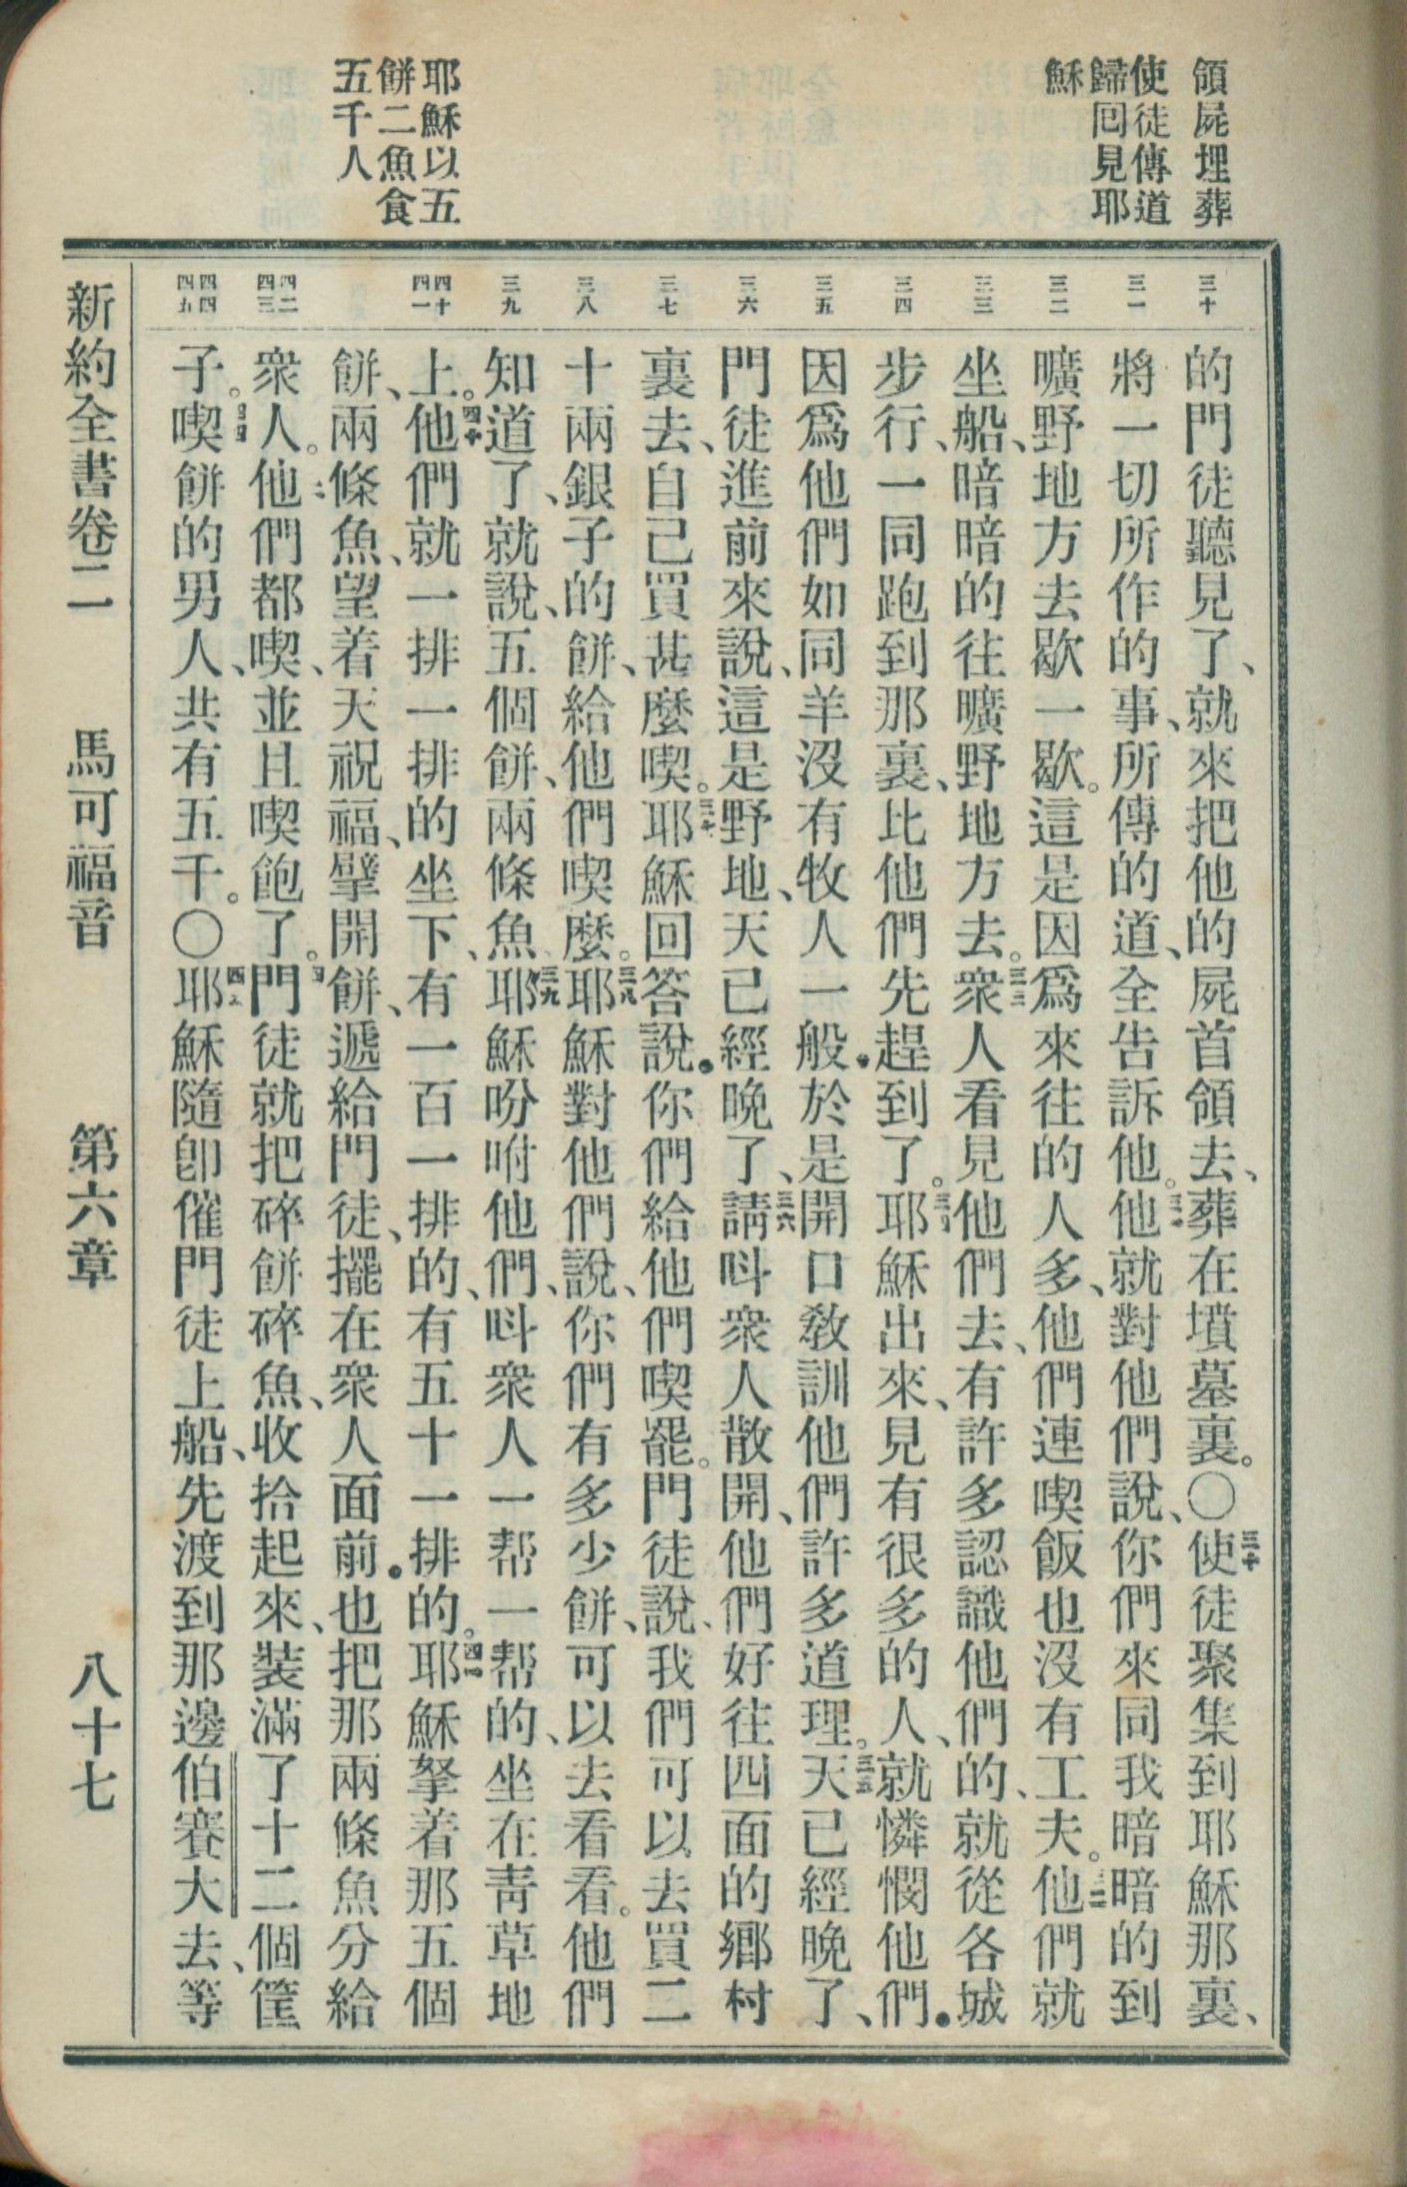 領屍埋葬
使徒傳道
歸囘見耶
穌
耶穌以五
餅二魚食
五千人
三十
三一
三二
三三
三四
三五
三六
三七
三八
三九
四十
四一
四二
四三
四四
四五
的門徒聽見了、就來把他的屍首領去、葬在墳墓裏。〇三十使徒聚集到耶穌那裏、
將一切所作的事、所傳的道、全告訴他。三一他就對他們說、你們來同我暗暗的到
曠野地方去歇一歇。這是因爲來往的人多、他們連喫飯也沒有工夫。三二他們就
坐船、暗暗的往曠野地方去。三三衆人看見他們去、有許多認識他們的、就從各城
步行、一同跑到那裏、比他們先趕到了。三四耶穌出來、見有很多的人、就憐憫他們.
因爲他們如同羊沒有牧人一般.於是開口敎訓他們許多道理。三五天已經晚了、
門徒進前來說、這是野地、天已經晚了、三六請呌衆人散開、他們好往四面的鄉村
裏去、自己買甚麼喫。三七耶穌回答說.你們給他們喫罷。門徒說、我們可以去買二
十兩銀子的餅、給他們喫麼。三八耶穌對他們說、你們有多少餅、可以去看看。他們
知道了、就說、五個餅、兩條魚。三九耶穌吩咐他們、呌衆人一帮一帮的、坐在靑草地
上。四十他們就一排一排的坐下、有一百一排的、有五十一排的。四一耶穌拏着那五個
餅、兩條魚、望着天祝福、擘開餅、遞給門徒、擺在衆人面前.也把那兩條魚分給
衆人。四二他們都喫、並且喫飽了。四三門徒就把碎餅碎魚、收拾起來、裝滿了十二個筐
子。四四喫餅的男人、共有五千。〇四五耶穌隨卽催門徒上船、先渡到那邊伯賽大去、等
新約全書卷二 馬可福音 第六章 八十七